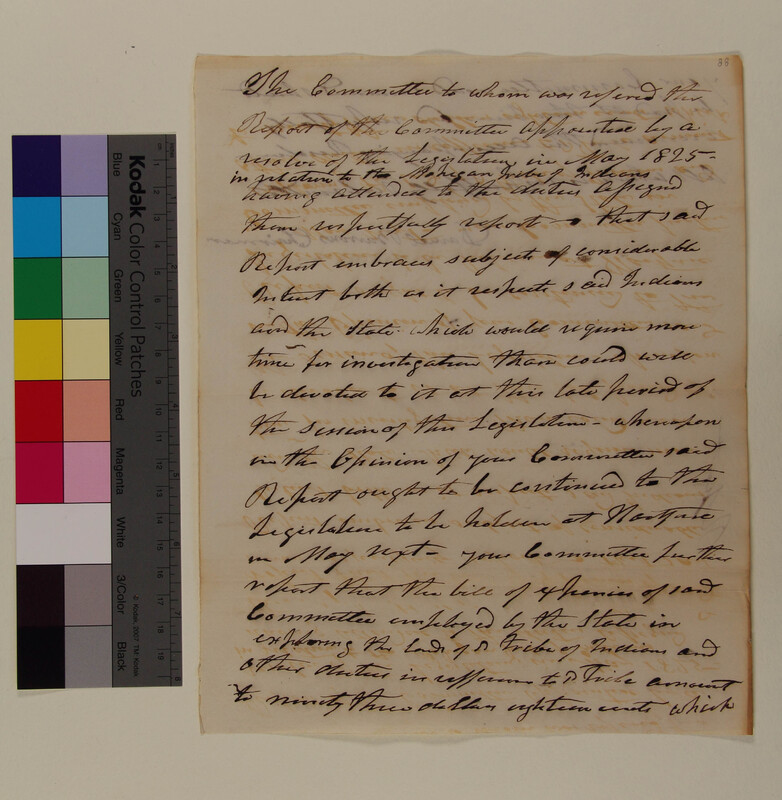 88
The Committee to whom was refered the
Report of the Committee appointed by a
resolve of the Legislature in May 1825-
in relation to the Mohegan tribe of Indians
having attended to the duties assigned
them respectfully report that said
Report embraces subjects of considerable
Interest both as it respects said Indians
and the State- which would require more
time for investigation than could well
be devoted to it at this late period of
the session of this Legislature- whereupon
in the Opinion of your Committee said
Report ought to be continued to the
Legislature to be holden at Hartford
in May next- your Committee further
report that the bill of expenses of said
Committee employed by the State in
exploring the lands of sd Tribe of Indians and
other duties in refference to sd Tribe amount
to ninety three dollars eighteen cents which
Kodak Color Control Patches
Blue
Cyan
Green
Yellow
Red
Magenta
White
3/Color
Black